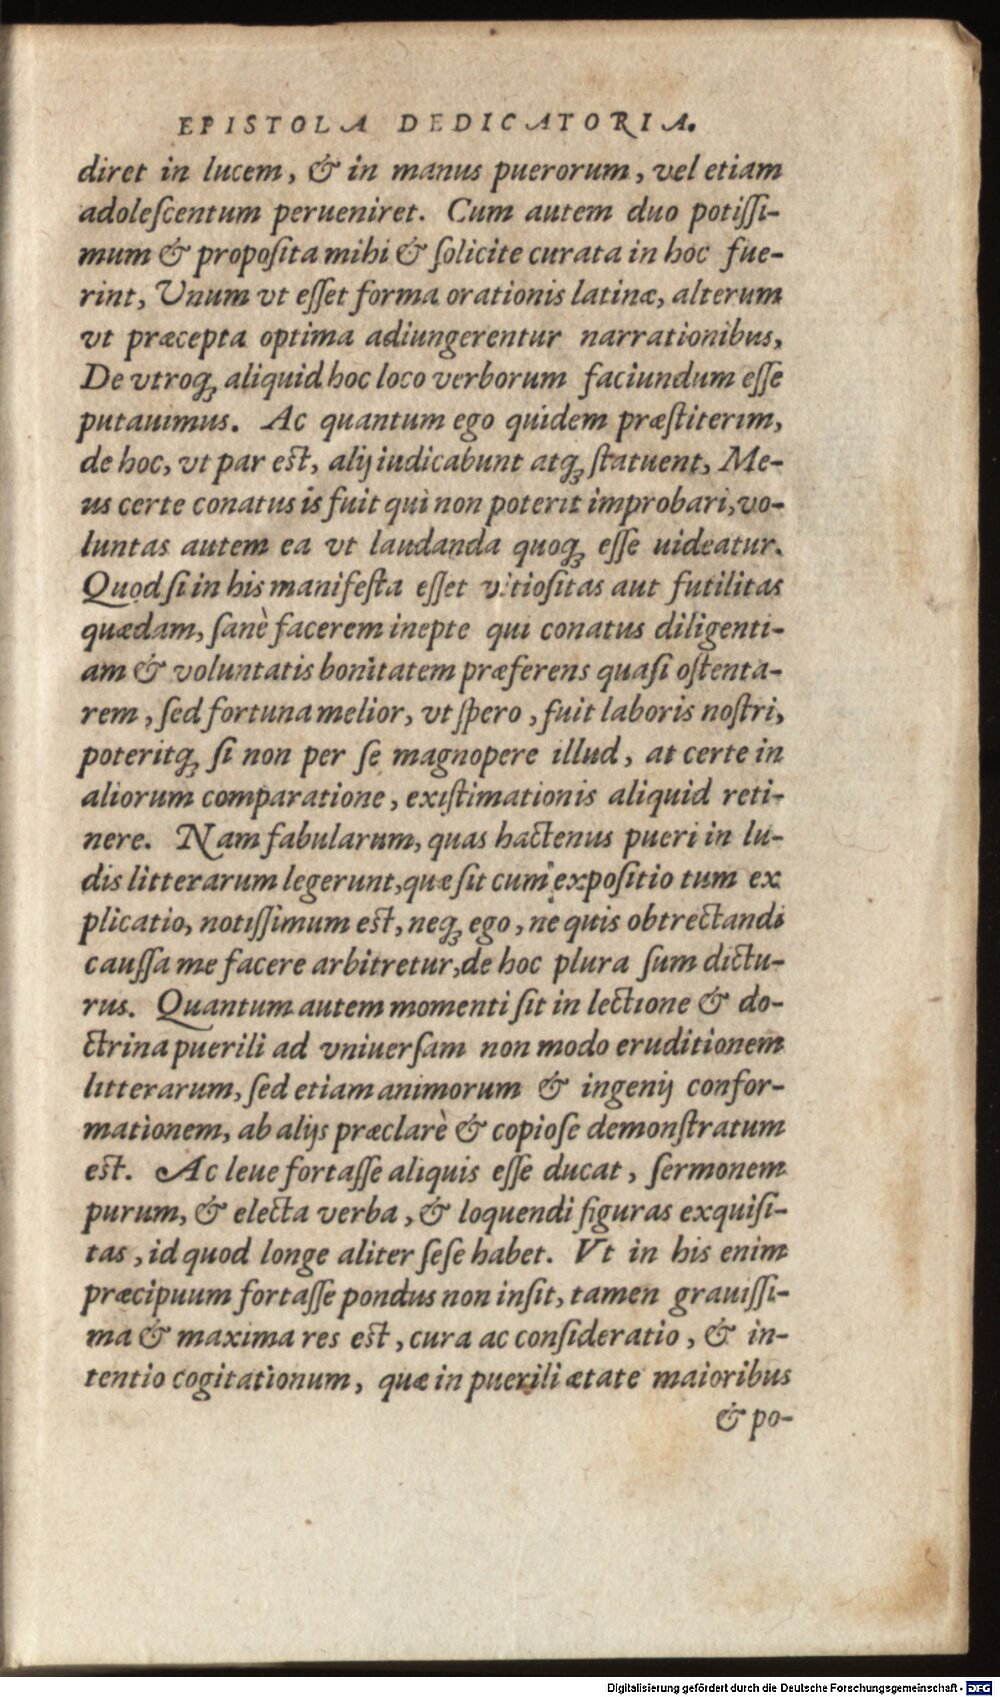 EPISTOLA DEDICATORIA.
diret in lucem, & in manus puerorum, vel etiam
adoleſcentum perueniret. Cum autem duo potiſſi-
mum & propoſita mihi & ſolicite curata in hoc fue-
rint, Unum vt eſſet forma orationis latinæ, alterum
vt præcepta optima adiungerentur narrationibus,
De vtroqꝫ aliquid hoc loco verborum faciundum eſſe
putauimus. Ac quantum ego quidem præſtiterim,
de hoc, vt par eſt, alij iudicabunt atqꝫ ſtatuent, Me-
us certe conatus is fuit qui non poterit improbari, vo-
luntas autem ea vt laudanda quoqꝫ eſſe uideatur.
Quod ſi in his manifeſta eſſet vitioſitas aut futilitas
quædam, ſanè facerem inepte qui conatus diligenti-
am & voluntatis bonitatem præferens quaſi oſtenta-
rem, ſed fortuna melior, vt ſpero, fuit laboris noſtri,
poteritqꝫ ſi non per ſe magnopere illud, at certe in
aliorum comparatione, exiſtimationis aliquid reti-
nere. Nam fabularum, quas hactenus pueri in lu-
dis litterarum legerunt, quæ ſit cum expoſitio tum ex
plicatio, notiſſimum eſt, neqꝫ ego, ne quis obtrectandi
cauſſa me facere arbitretur, de hoc plura ſum dictu-
rus. Quantum autem momenti ſit in lectione & do-
ctrina puerili ad vniuerſam non modo eruditionem
litterarum, ſed etiam animorum & ingenij confor-
mationem, ab alijs præclarè & copioſe demonſtratum
eſt. Ac leue fortaſſe aliquis eſſe ducat, ſermonem
purum, & electa verba, & loquendi figuras exquiſi-
tas, id quod longe aliter ſeſe habet. Vt in his enim
præcipuum fortaſſe pondus non inſit, tamen grauiſſi-
ma & maxima res eſt, cura ac conſideratio, & in-
tentio cogitationum, quæ in puerili ætate maioribus
& po-
Digitalisierung gefördert durch die Deutsche Forschungsgemeinschaft - DFG